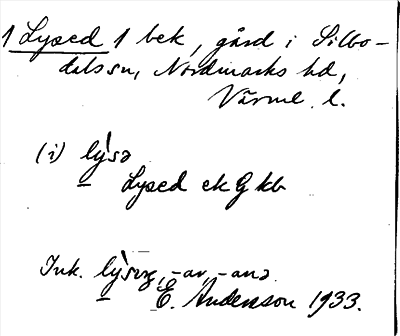 1 Lysed 1 bek, gård i Silbo-
dals sn, Nordmarks hd,
Värml. l.
(i) lỳsə
Lysed ek G kb
Ink. -ar, -anə
E. Andersson 1933.